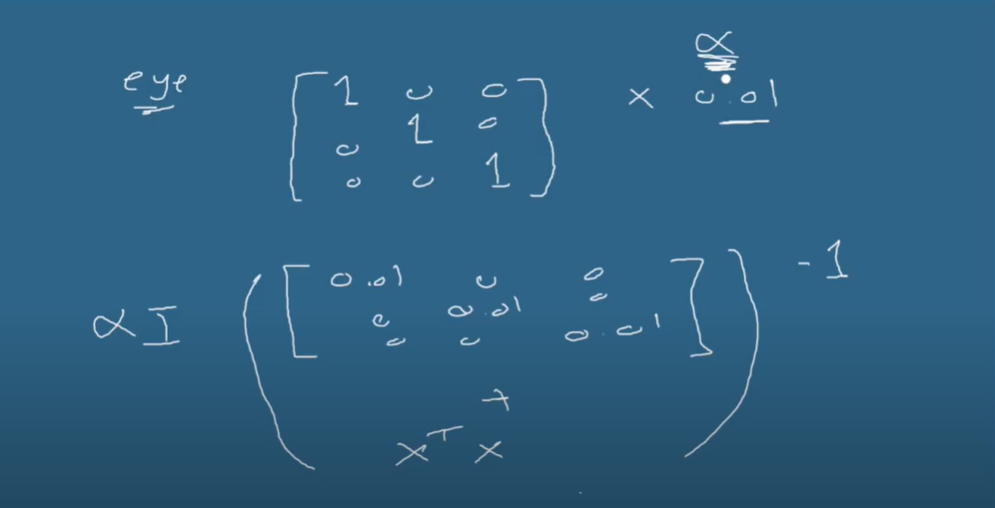 α
eye [ 1 0 0 ] × 0.01
0 1 0
0 0 1
αI ( [ 0.01 0 0 ] ) -1
0 0.01 0
0 0 0.01
+
X^T X